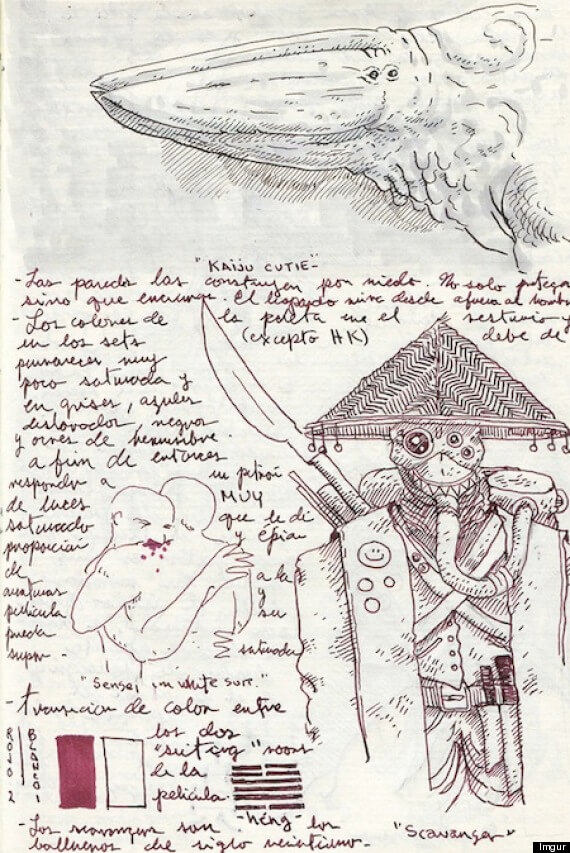 "KAIJU CUTIE"
-Las paredes las construyen por miedo. No solo protegen
sino que encierran. El              mira desde afuera al hombre
-Los colores de la paleta en el vestuario y
en los sets (excepto HK) debe de
              muy
poco saturada y
en grises, azules
deslavados, negros
y ocres de herrumbre.
a fin de entonces
responder a un patrón
de luces MUY
saturado que le dé
proporción y épica
de a la
aventuras y
película su
pueda saturada
"Sensei in white suit."
-transición de color entre
los dos
"suiting" room
de la
película.
ROJO 2
BLANCO 1
-héng-
-Los scavangers son los
balleneros de siglo veintiuno.
"Scavanger"
Imgur